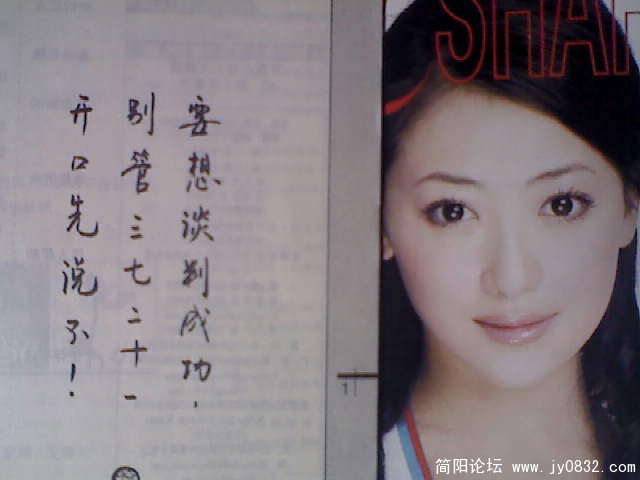 要想谈判成功，
别管三七二十一
开口先说不！
SHAR
1
简阳论坛 www.jy0832.com